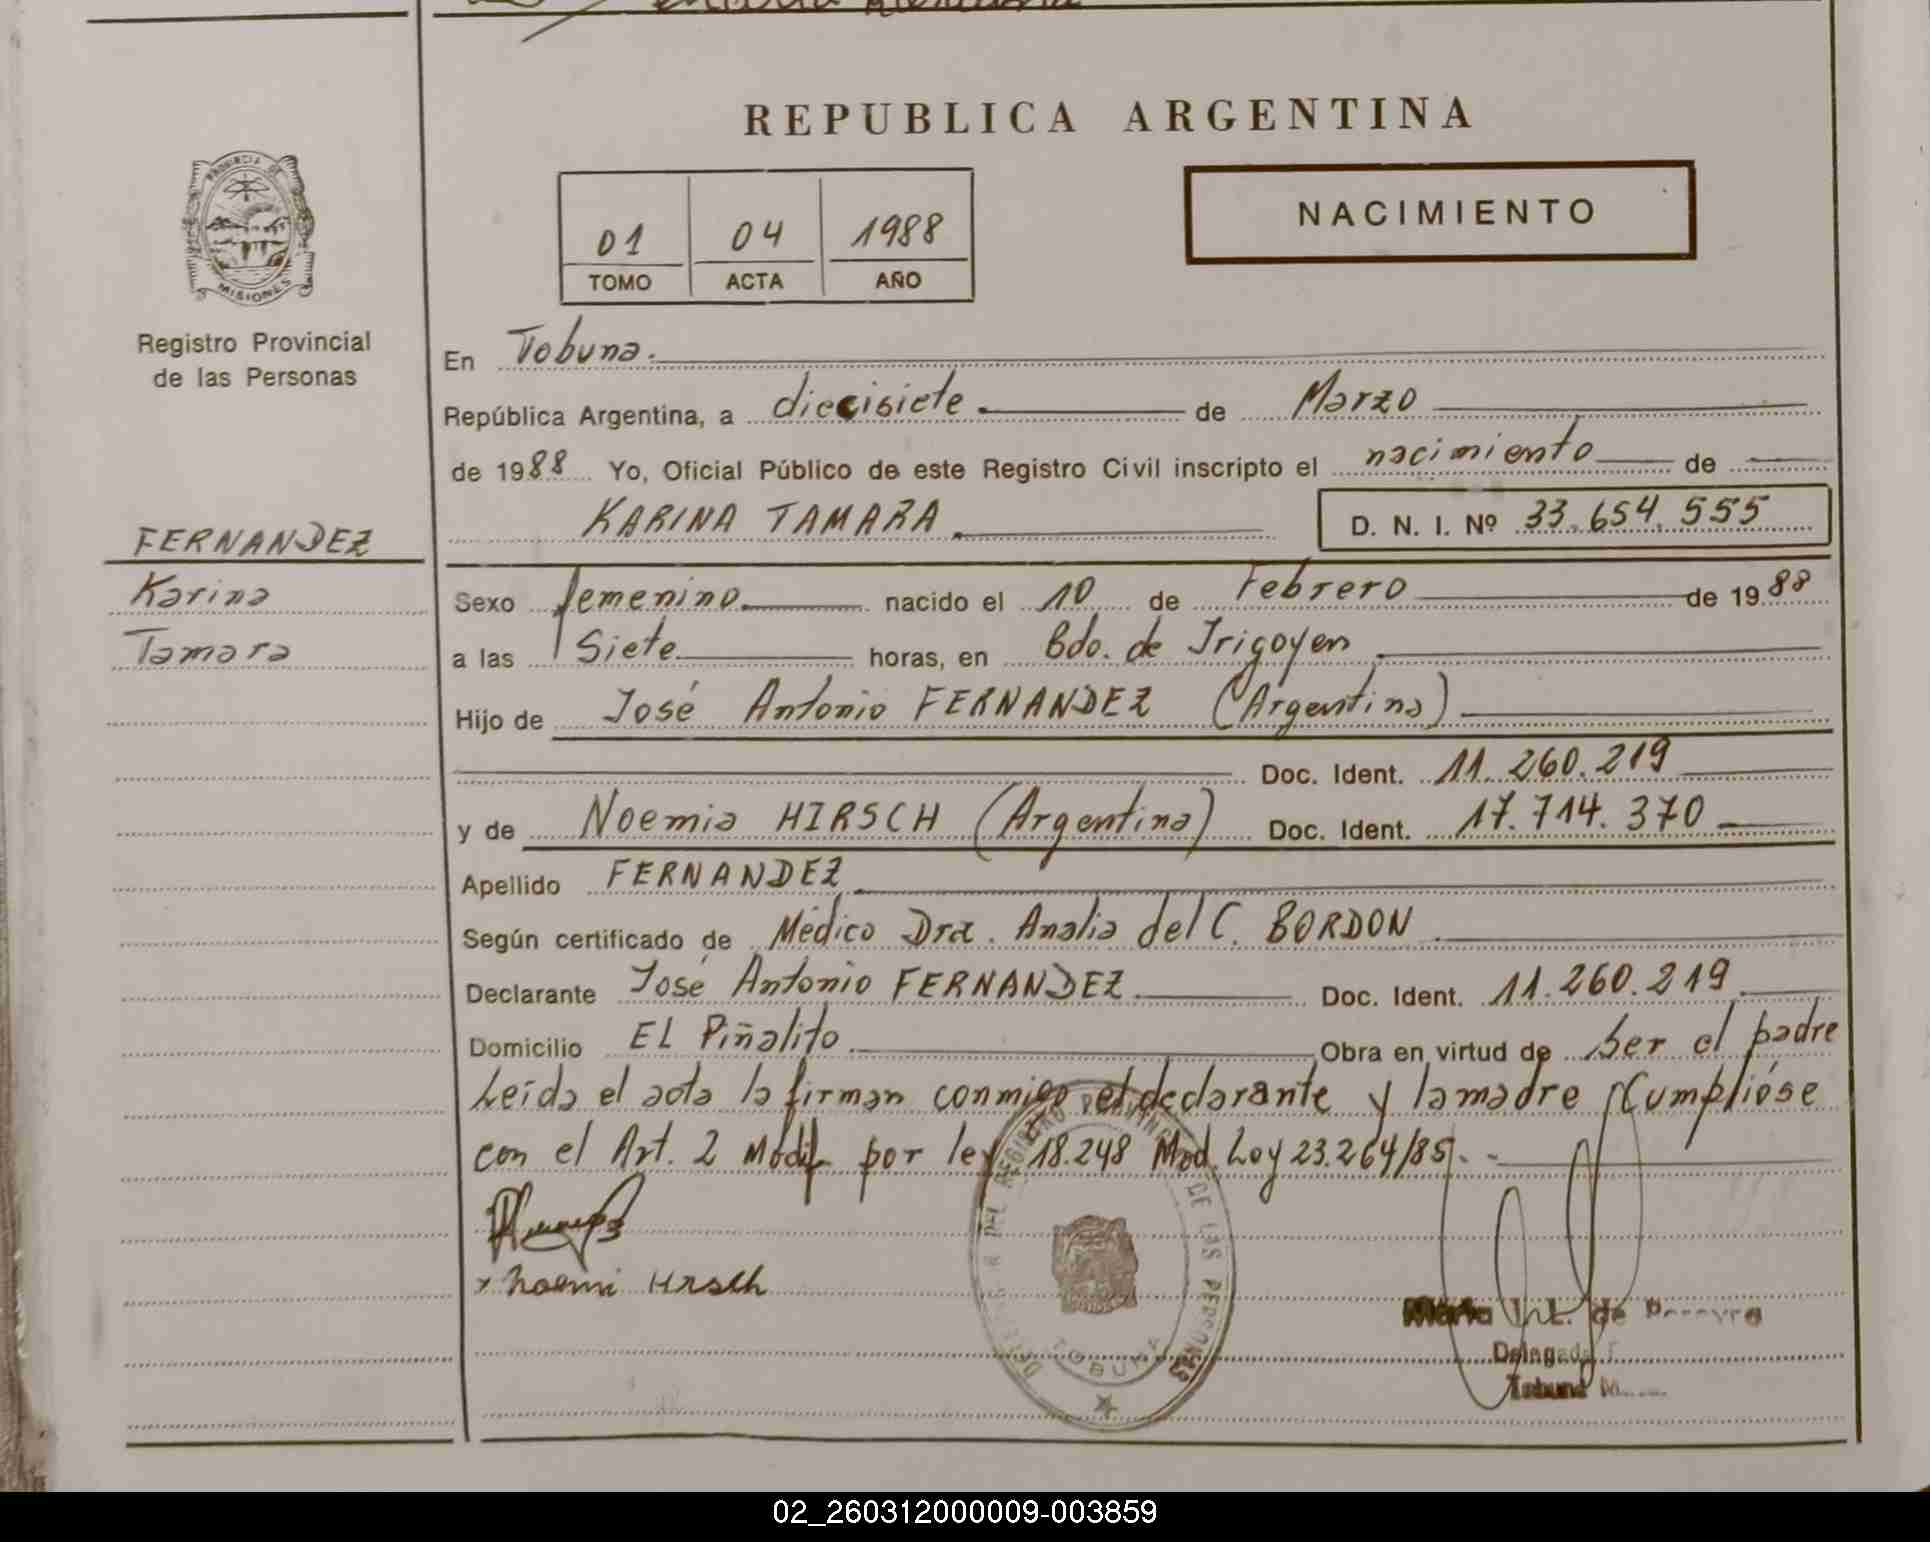 REPUBLICA ARGENTINA
PROVINCIA DE
MISIONES
Registro Provincial
de las Personas
01 04 1988
TOMO ACTA AÑO
NACIMIENTO
En Tobuna.
República Argentina, a diecisiete. de Marzo
de 1988 Yo, Oficial Público de este Registro Civil inscripto el nacimiento de
KARINA TAMARA D. N. I. Nº 33.654.555
FERNANDEZ
Karina
Tamara
Sexo femenino. nacido el 10 de Febrero de 1988
a las Siete horas, en Bdo. de Irigoyen
Hijo de José Antonio FERNANDEZ (Argentina)
Doc. Ident. 11.260.219
y de Noemia HIRSCH (Argentina) Doc. Ident. 17.714.370
Apellido FERNANDEZ
Según certificado de Médico Dra. Analia del C. BORDON
Declarante José Antonio FERNANDEZ Doc. Ident. 11.260.219
Domicilio EL Piñalito Obra en virtud de Ser el padre
Leída el acta la firman conmigo el declarante y la madre Cumplióse
con el Art. 2 Modif por ley 18.248 Mod. Ley 23.264/85.-
Noemi Hrsch
DEL REGISTRO DE LAS PERSONAS
TOBUNA
María de
Delegada
Tobuna
02_260312000009-003859